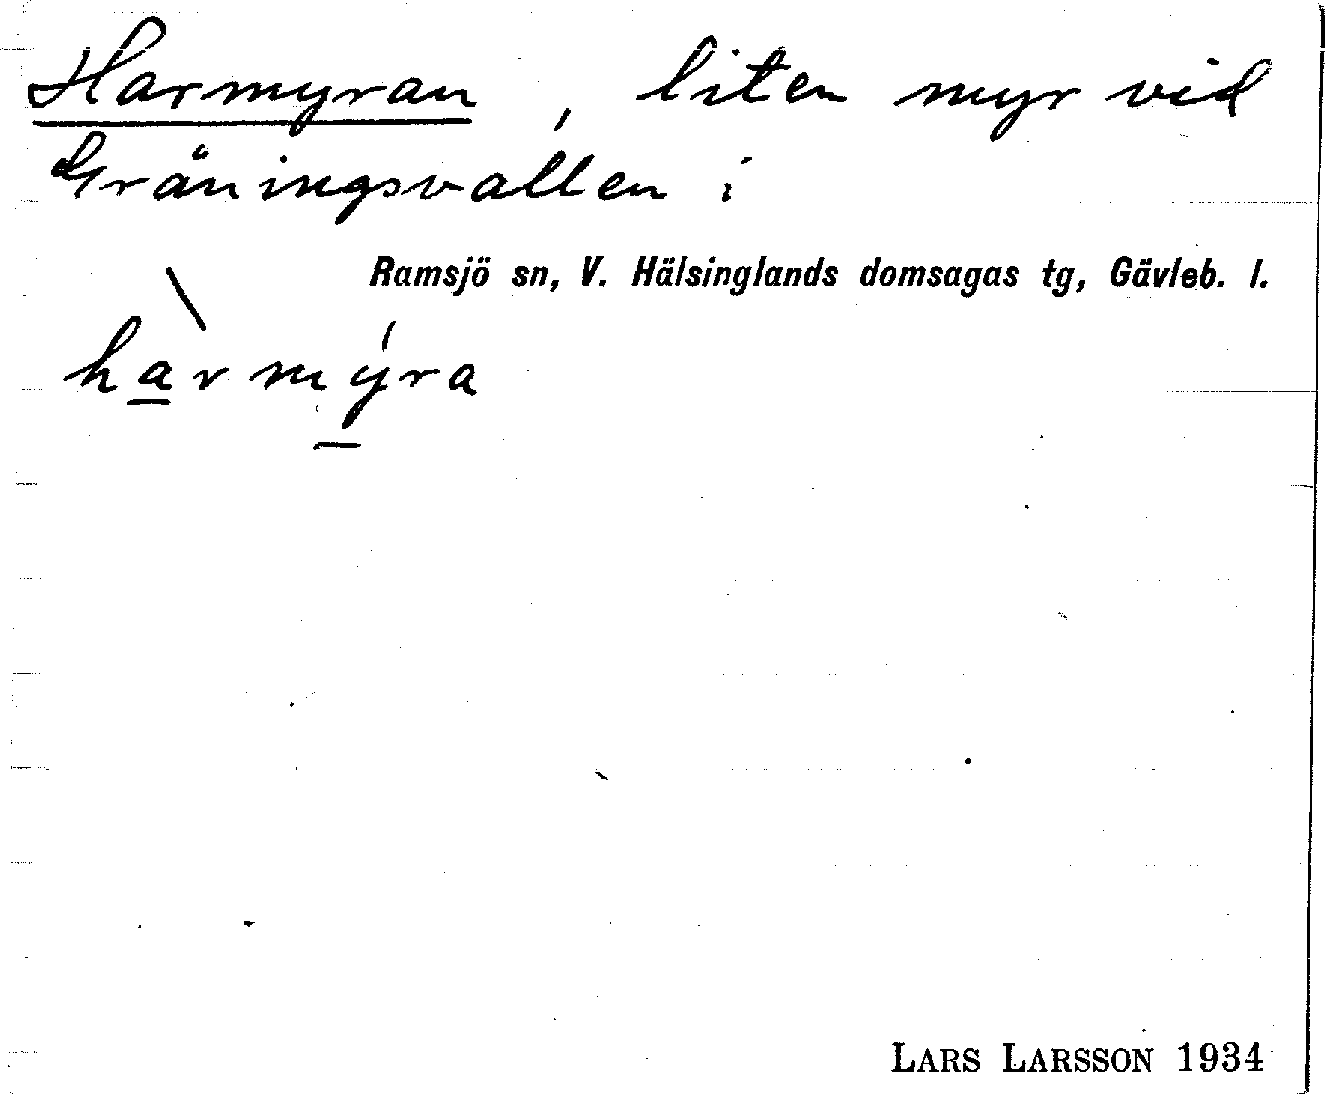 Harmyran, liten myr vid
Gråningsvallen i
Ramsjö sn, V. Hälsinglands domsagas tg, Gävleb. l.
hàrmýra
LARS LARSSON 1934